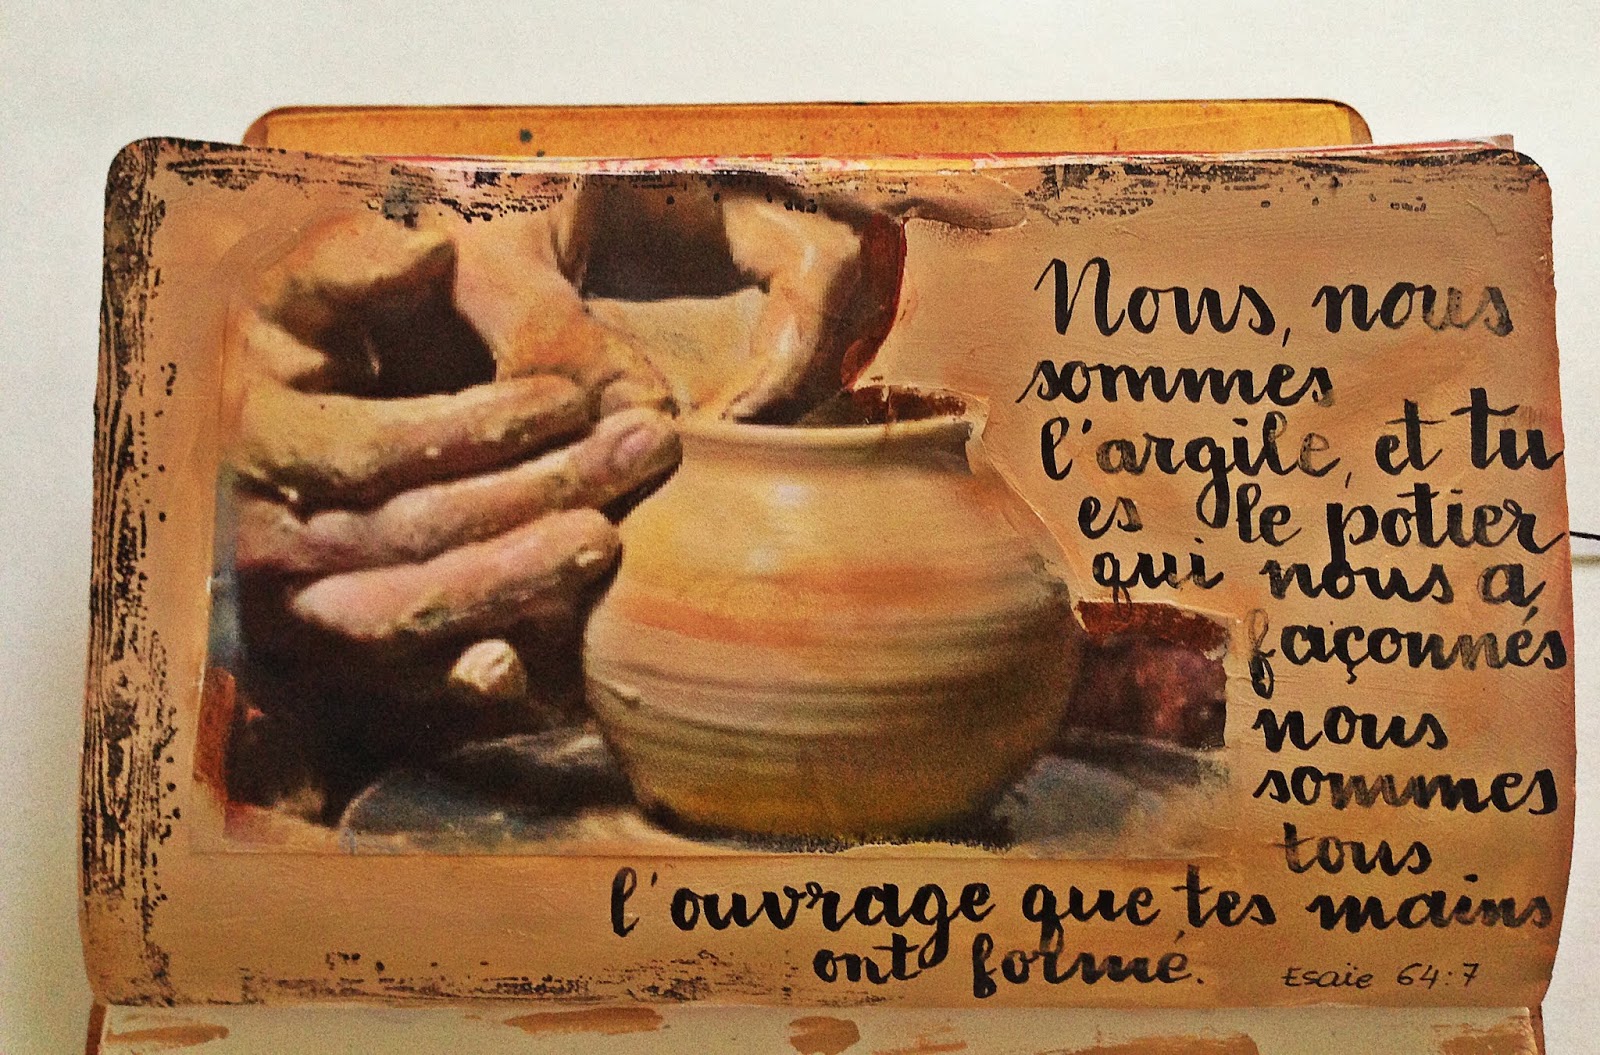 Nous, nous
sommes
l'argile, et tu
es le potier
qui nous a
façonnés
nous
sommes
tous
l'ouvrage que tes mains
ont formé.
Esaïe 64:7